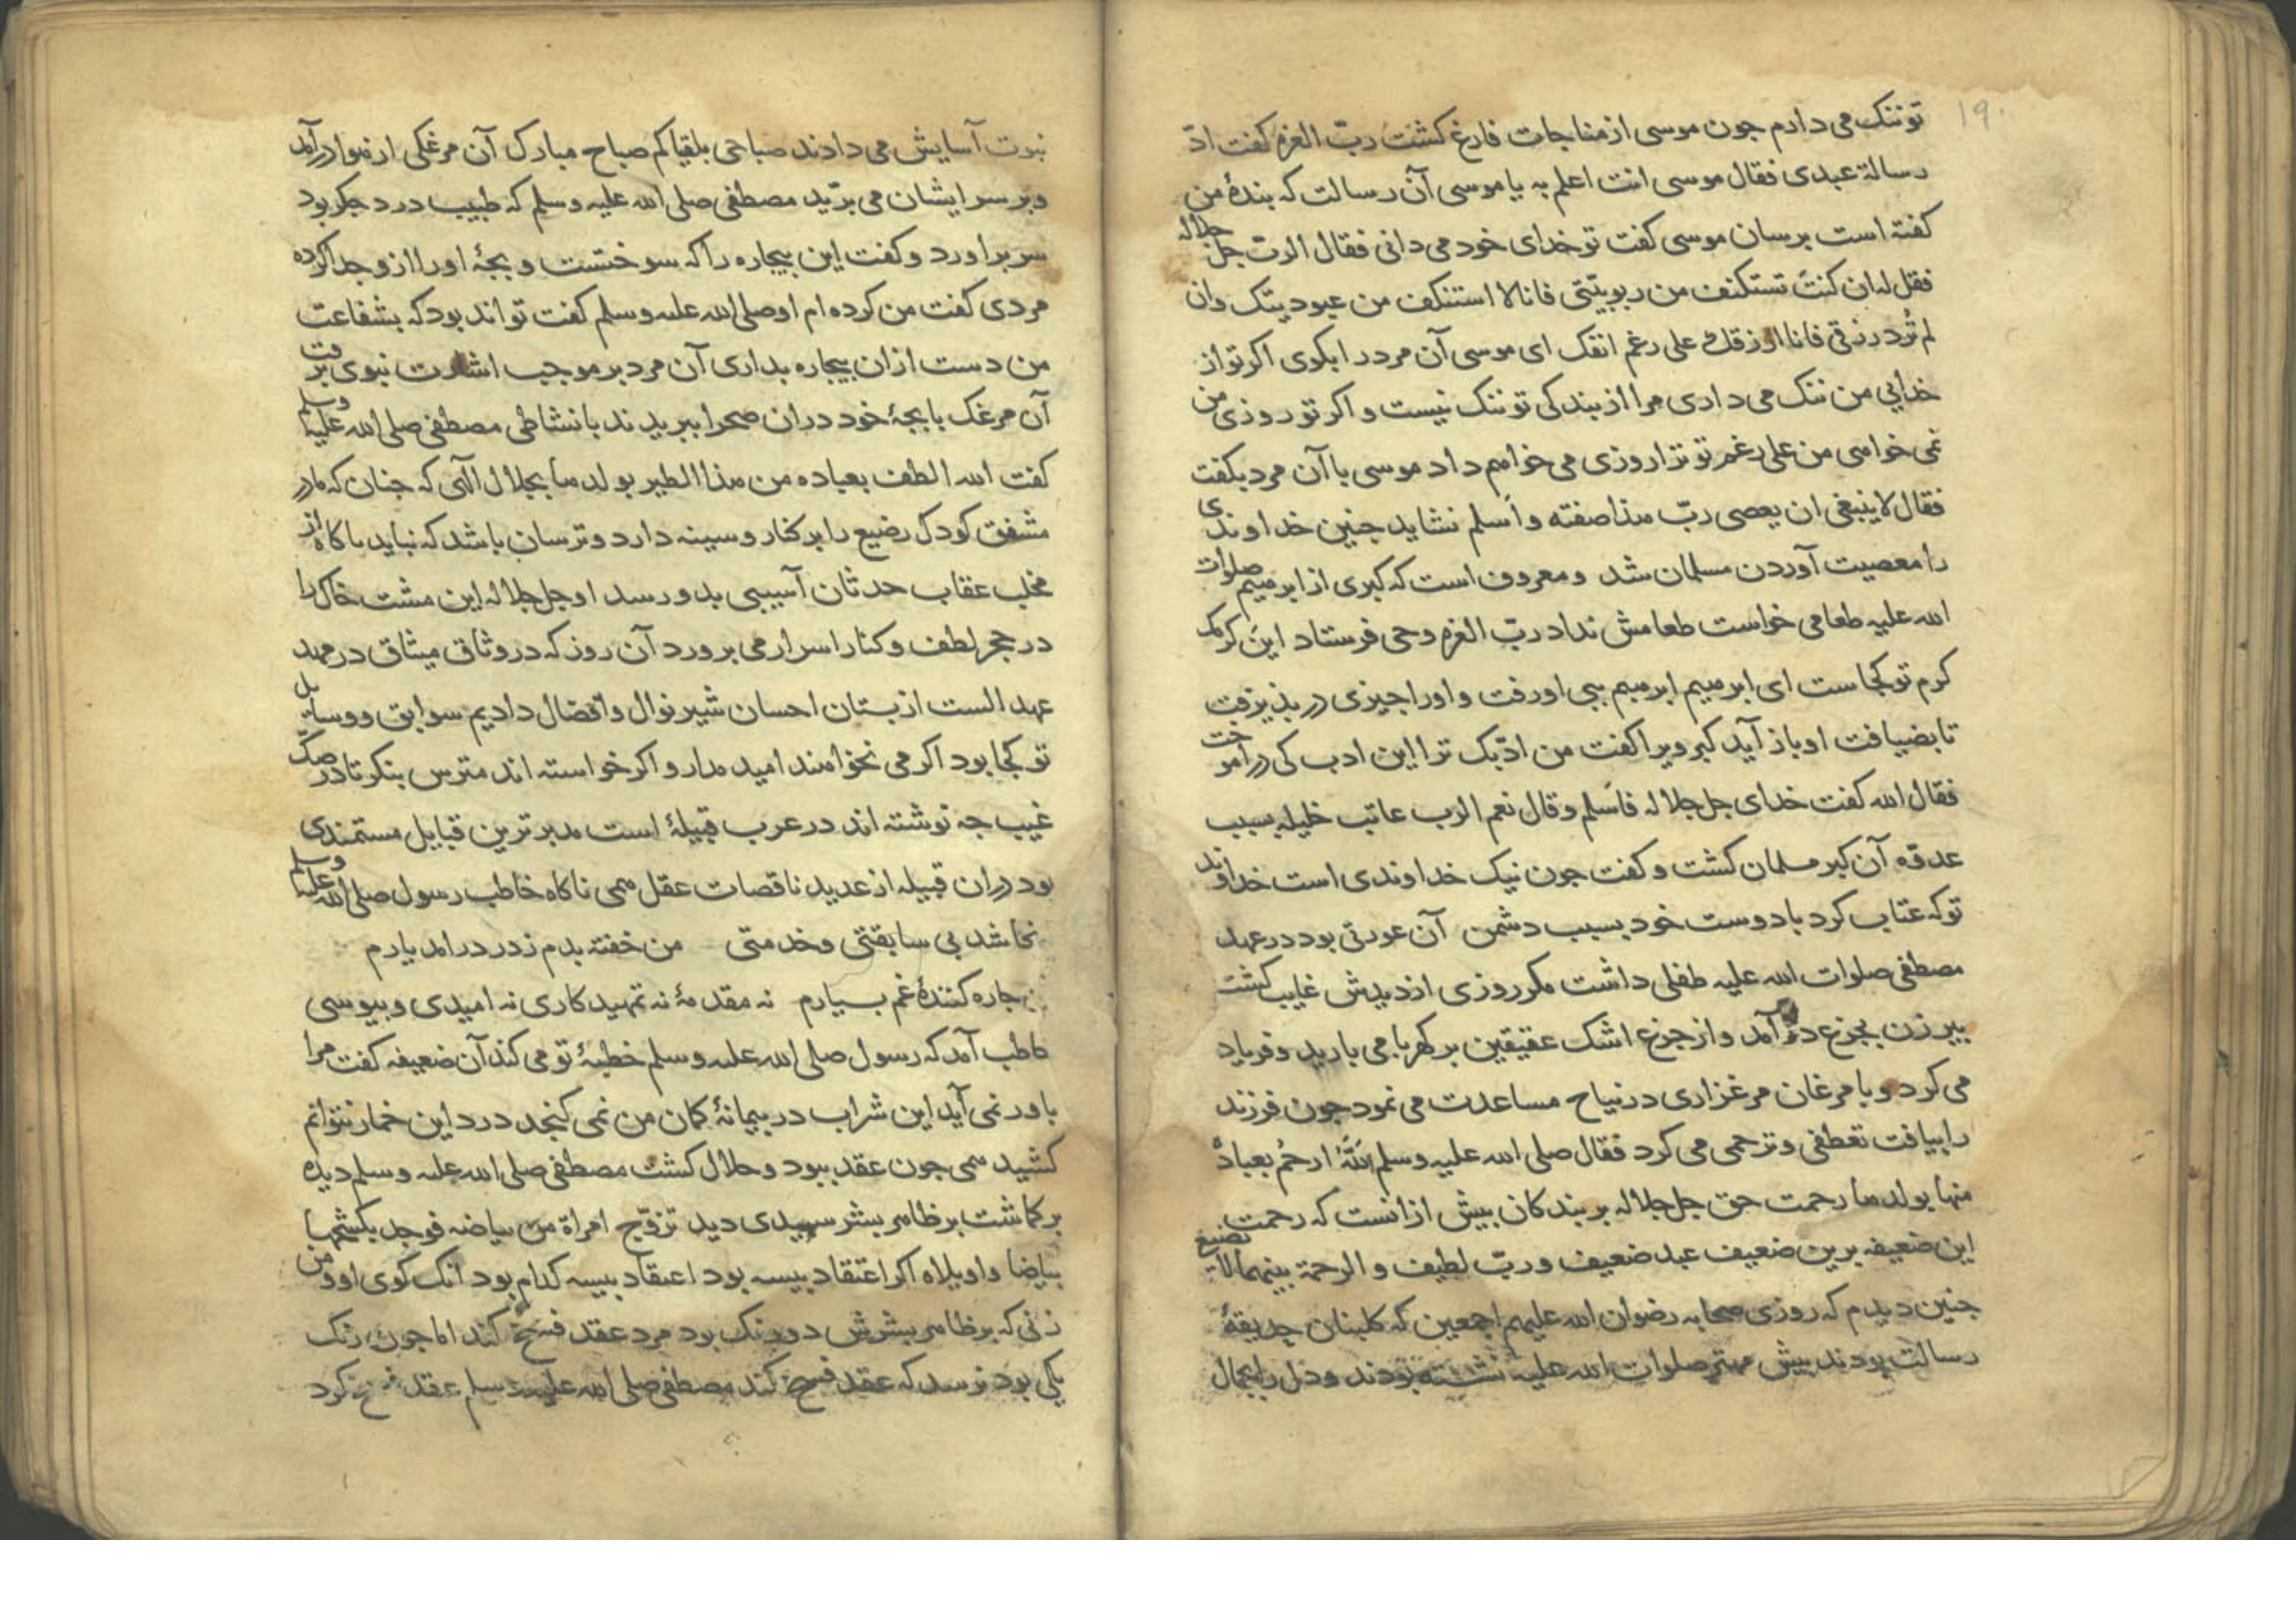 ۱۹۰
تو ننک می دارم جون موسی از مناجات فارغ کشت ربّ العزه کفت ادّ
رسالة عبدی فقال موسی انت اعلم به یا موسی آن رسالت که بندهٔ من
کفته است برسان موسی کفت تو خدای خود می دانی فقال الربّ جل جلاله
فقل له ان کنتَ تستنکف من ربوبیّتی فانا لا استنکف من عبودیتک وان
لم تُرد رزقی فانا ارزقک علی رغم انفک ای موسی آن مرد را بکوی اکر تو از
خدایی من ننک می داری مرا از بندکی تو ننک نیست و اکر تو روزی من
نمی خواهی من علی رغم تو ترا روزی می خواهم داد موسی با آن مرد بکفت
فقال لا ینبغی ان یعصی ربّ هذا صفته و اَسلم نشاید جنین خداوندی
را معصیت آوردن مسلمان شد و معروف است که کبری از ابرهیم صلوات
الله علیه طعامی خواست طعامش نداد ربّ العزه وحی فرستاد این کرمک
کرم تو کجاست ای ابرهیم ابرهیم بی او رفت و اورا جیزی در بذیرفت
تا بضیافت او باز آید کبر ویرا کفت من ادّبک ترا این ادب کی در آموخت
فقال الله کفت خدای جل جلاله فاَسلم وقال نعم الرب عاتب خلیله بسبب
عدوّه آن کبر مسلمان کشت و کفت جون نیک خداوندی است خداوند
تو که عتاب کرد با دوست خود بسبب دشمن آن عورتی بود در عهد
مصطفی صلوات الله علیه طفلی داشت مکر روزی از دیدش غایب کشت
بیر زن بجزع در آمد و از جزع اشک عقیقین بر کهربا می بارید و فریاد
می کرد و با مرغان مرغزاری در نیاح مساعدت می نمود جون فرزند
را بیافت تعطفی و ترحمی می کرد فقال صلی الله علیه وسلم اللهُ ارحمُ بعباده
منها بولدها رحمت حق جل جلاله بر بندکان بیش از انست که رحمت
این ضعیفه برین ضعیف عبد ضعیف و ربّ لطیف و الرحمة بینهما لا تضییع
جنین دیدم که روزی صحابه رضوان الله علیهم اجمعین که کلبنان حدیقهٔ
رسالت بودند بیش مهتر صلوات الله علیه نشسته بودند و دل را بجمال
نبوت آسایش می دادند صباحی بلقیاکم صباح مبارک آن مرغکی از هوا درآمد
و بر سر ایشان می برّید مصطفی صلی الله علیه وسلم که طبیب درد جکر بود
سر براورد و کفت این بیجاره را که سوختست و بجهٔ او را ازو جدا کرده
مردی کفت من کرده ام او صلی الله علیه وسلم کفت تواند بود که بشفاعت
من دست ازان بیجاره بداری آن مرد بر موجب اشارت نبوی برفت
آن مرغک با بجهٔ خود دران صحرا ببریدند با نشاطی مصطفی صلی الله علیه وسلم
کفت الله الطف بعباده من هذا الطیر بولدها بجلال الهی که جنان که مادر
مشفق کودک رضیع را بر کنار و سینه دارد و ترسان باشد که نباید ناکاه از
مخلب عقاب حدثان آسیبی بدو رسد او جل جلاله این مشت خاک را
در حجر لطف و کنار اسرار می برورد آن روز که در وثاق میثاق در مهد
عهد الست از بستان احسان شیر نوال و افضال دادیم سوابق و وسایل
تو کجا بود اکر می نخواهند امید مدار و اکر خواسته اند مترس بنکر تا در صکّ
غیب جه نوشته اند در عرب قبیلهٔ است مدبرترین قبایل مستمندی
بود دران قبیله از عدید ناقصات عقل همی ناکاه خاطب رسول صلی الله علیه وسلم
شد بی سابقتی و خدمتی من خفته بدم ز در درامد یارم
جاره کنندهٔ غم بسیارم نه مقدمهٔ نه تمهید کاری نه امیدی و بیوسی
خاطب آمد که رسول صلی الله علیه وسلم خطبهٔ تو می کند آن ضعیفه کفت مرا
باور نمی آید این شراب در بیمانهٔ کمان من نمی کنجد درد این خمار نتوانم
کشید همی جون عقد ببود و حلال کشت مصطفی صلی الله علیه وسلم دیده
بر کماشت بر ظاهر بشر سپیدی دید تزوّج امراة من بیاضه فوجد بکشحها
بیاضا واویلاه اکر اعتقاد بیسه بود اعتقاد بیسه کدام بود آنک کوی او و من
زنی که بر ظاهر بشرش دو رنک بود مرد عقد فسخ کند اما جون رنک
یکی بود نرسد که عقد فسخ کند مصطفی صلی الله علیه وسلم عقد فسخ کرد